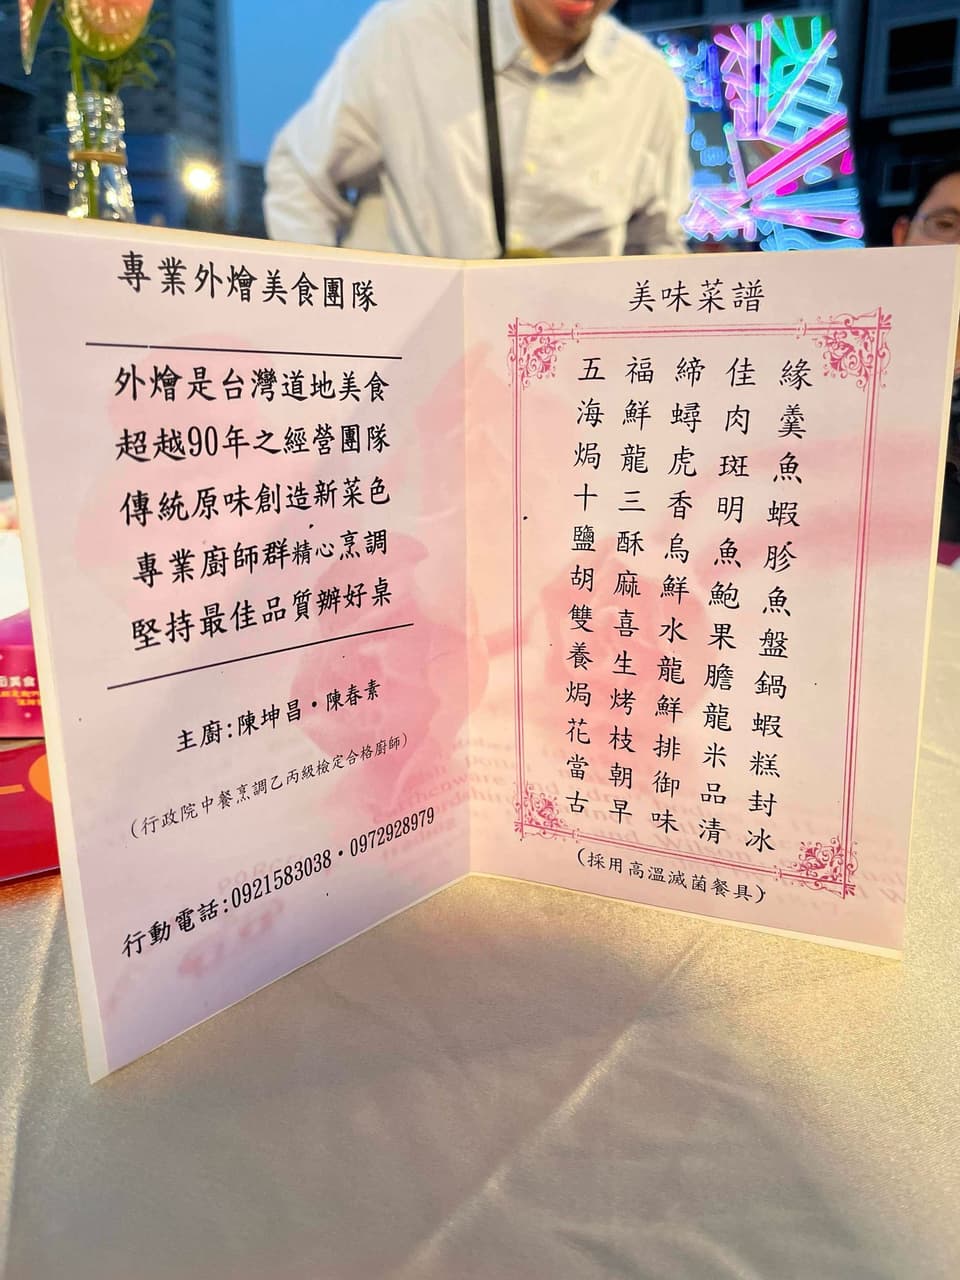 專業外燴美食團隊
外燴是台灣道地美食
超越90年之經營團隊
傳統原味創造新菜色
專業廚師群精心烹調
堅持最佳品質辦好桌
主廚:陳坤昌・陳春素
(行政院中餐烹調乙丙級檢定合格廚師)
行動電話:0921583038・0972928979
美味菜譜
五福締佳緣
海鮮蟳肉羹
焗龍虎斑魚
十三香明蝦
鹽酥烏魚胗
胡麻鮮鮑魚
雙喜水果盤
養生龍膽鍋
焗烤鮮龍蝦
花枝排米糕
當朝御品封
古早味清冰
(採用高溫滅菌餐具)